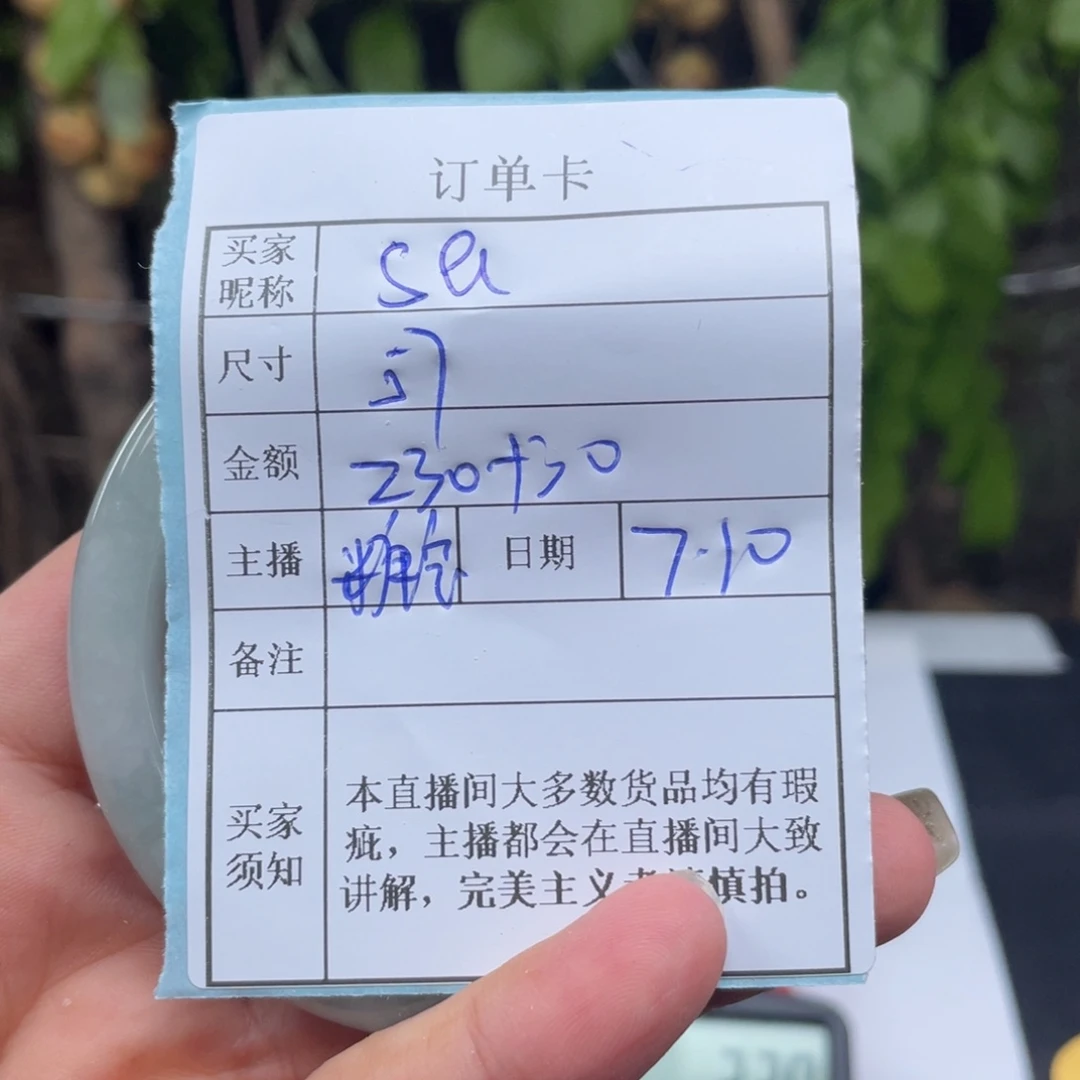 订单卡
买家昵称 sa
尺寸
金额 230+30
主播 日期 7.10
备注
买家须知
本直播间大多数货品均有瑕
疵，主播都会在直播间大致
讲解，完美主义者 慎拍。